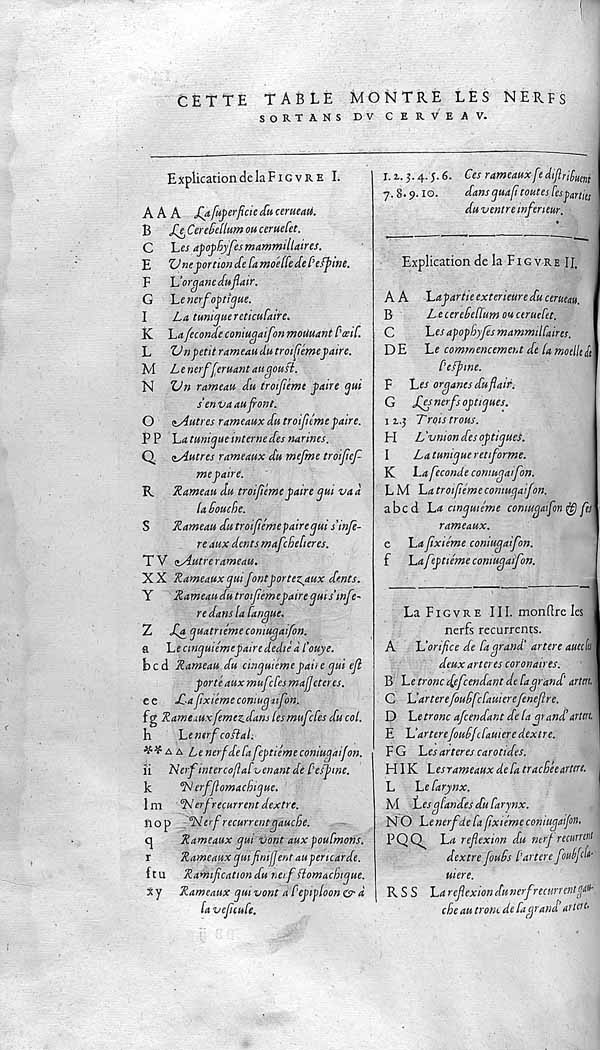 CETTE TABLE MONTRE LES NERFS
SORTANS DV CERVEAV.
Explication de la FIGVRE I.
A A A La superficie du cerueau.
B Le Cerebellum ou ceruelet.
C Les apophyses mammillaires.
E Vne portion de la moelle de l'espine.
F L'organe du flair.
G Le nerf optique.
I La tunique reticulaire.
K La seconde coniugaison mouuant l'œil.
L Vn petit rameau du troisiéme paire.
M Le nerf seruant au goust.
N Vn rameau du troisiéme paire qui
s'en va au front.
O Autres rameaux du troisiéme paire.
PP La tunique interne des narines.
Q Autres rameaux du mesme troisies-
me paire.
R Rameau du troisiéme paire qui va à
la bouche.
S Rameau du troisiéme paire qui s'inse-
re aux dents maschelieres.
TV Autre rameau.
XX Rameaux qui sont portez aux dents.
Y Rameau du troisiéme paire qui s'inse-
re dans la langue.
Z La quatriéme coniugaison.
a Le cinquiéme paire dedié à l'ouye.
bcd Rameau du cinquieme paire qui est
porté aux muscles masseteres.
ee La sixiéme coniugaison.
fg Rameaux semez dans les muscles du col.
h Le nerf costal.
**△△ Le nerf de la septiéme coniugaison.
ii Nerf intercostal venant de l'espine.
k Nerf stomachique.
lm Nerf recurrent dextre.
nop Nerf recurrent gauche.
q Rameaux qui vont aux poulmons.
r Rameaux qui finissent au pericarde.
ftu Ramification du nerf stomachique.
xy Rameaux qui vont à l'epiploon & à
la vesicule.
1.2.3.4.5.6. Ces rameaux se distribuent
7.8.9.10. dans quasi toutes les parties
du ventre inferieur.
Explication de la FIGVRE II.
AA La partie exterieure du cerueau.
B Le cerebellum ou ceruelet.
C Les apophyses mammillaires.
DE Le commencement de la moelle de
l'espine.
F Les organes du flair.
G Les nerfs optiques.
123 Trois trous.
H L'vnion des optiques.
I La tunique retiforme.
K La seconde coniugaison.
LM La troisiéme coniugaison.
abcd La cinquiéme coniugaison & ses
rameaux.
e La sixiéme coniugaison.
f La septiéme coniugaison.
La FIGVRE III. monstre les
nerfs recurrents.
A L'orifice de la grand' artere auec les
deux arteres coronaires.
B Le tronc descendant de la grand' artere.
C L'artere soubsclauiere senestre.
D Le tronc ascendant de la grand' artere.
E L'artere soubsclauiere dextre.
FG Les arteres carotides.
HIK Les rameaux de la trachée artere.
L Le larynx.
M Les glandes du larynx.
NO Le nerf de la sixiéme coniugaison.
PQQ La reflexion du nerf recurrent
dextre soubs l'artere soubscla-
uiere.
RSS La reflexion du nerf recurrent gau-
che au tronc de la grand' artere.